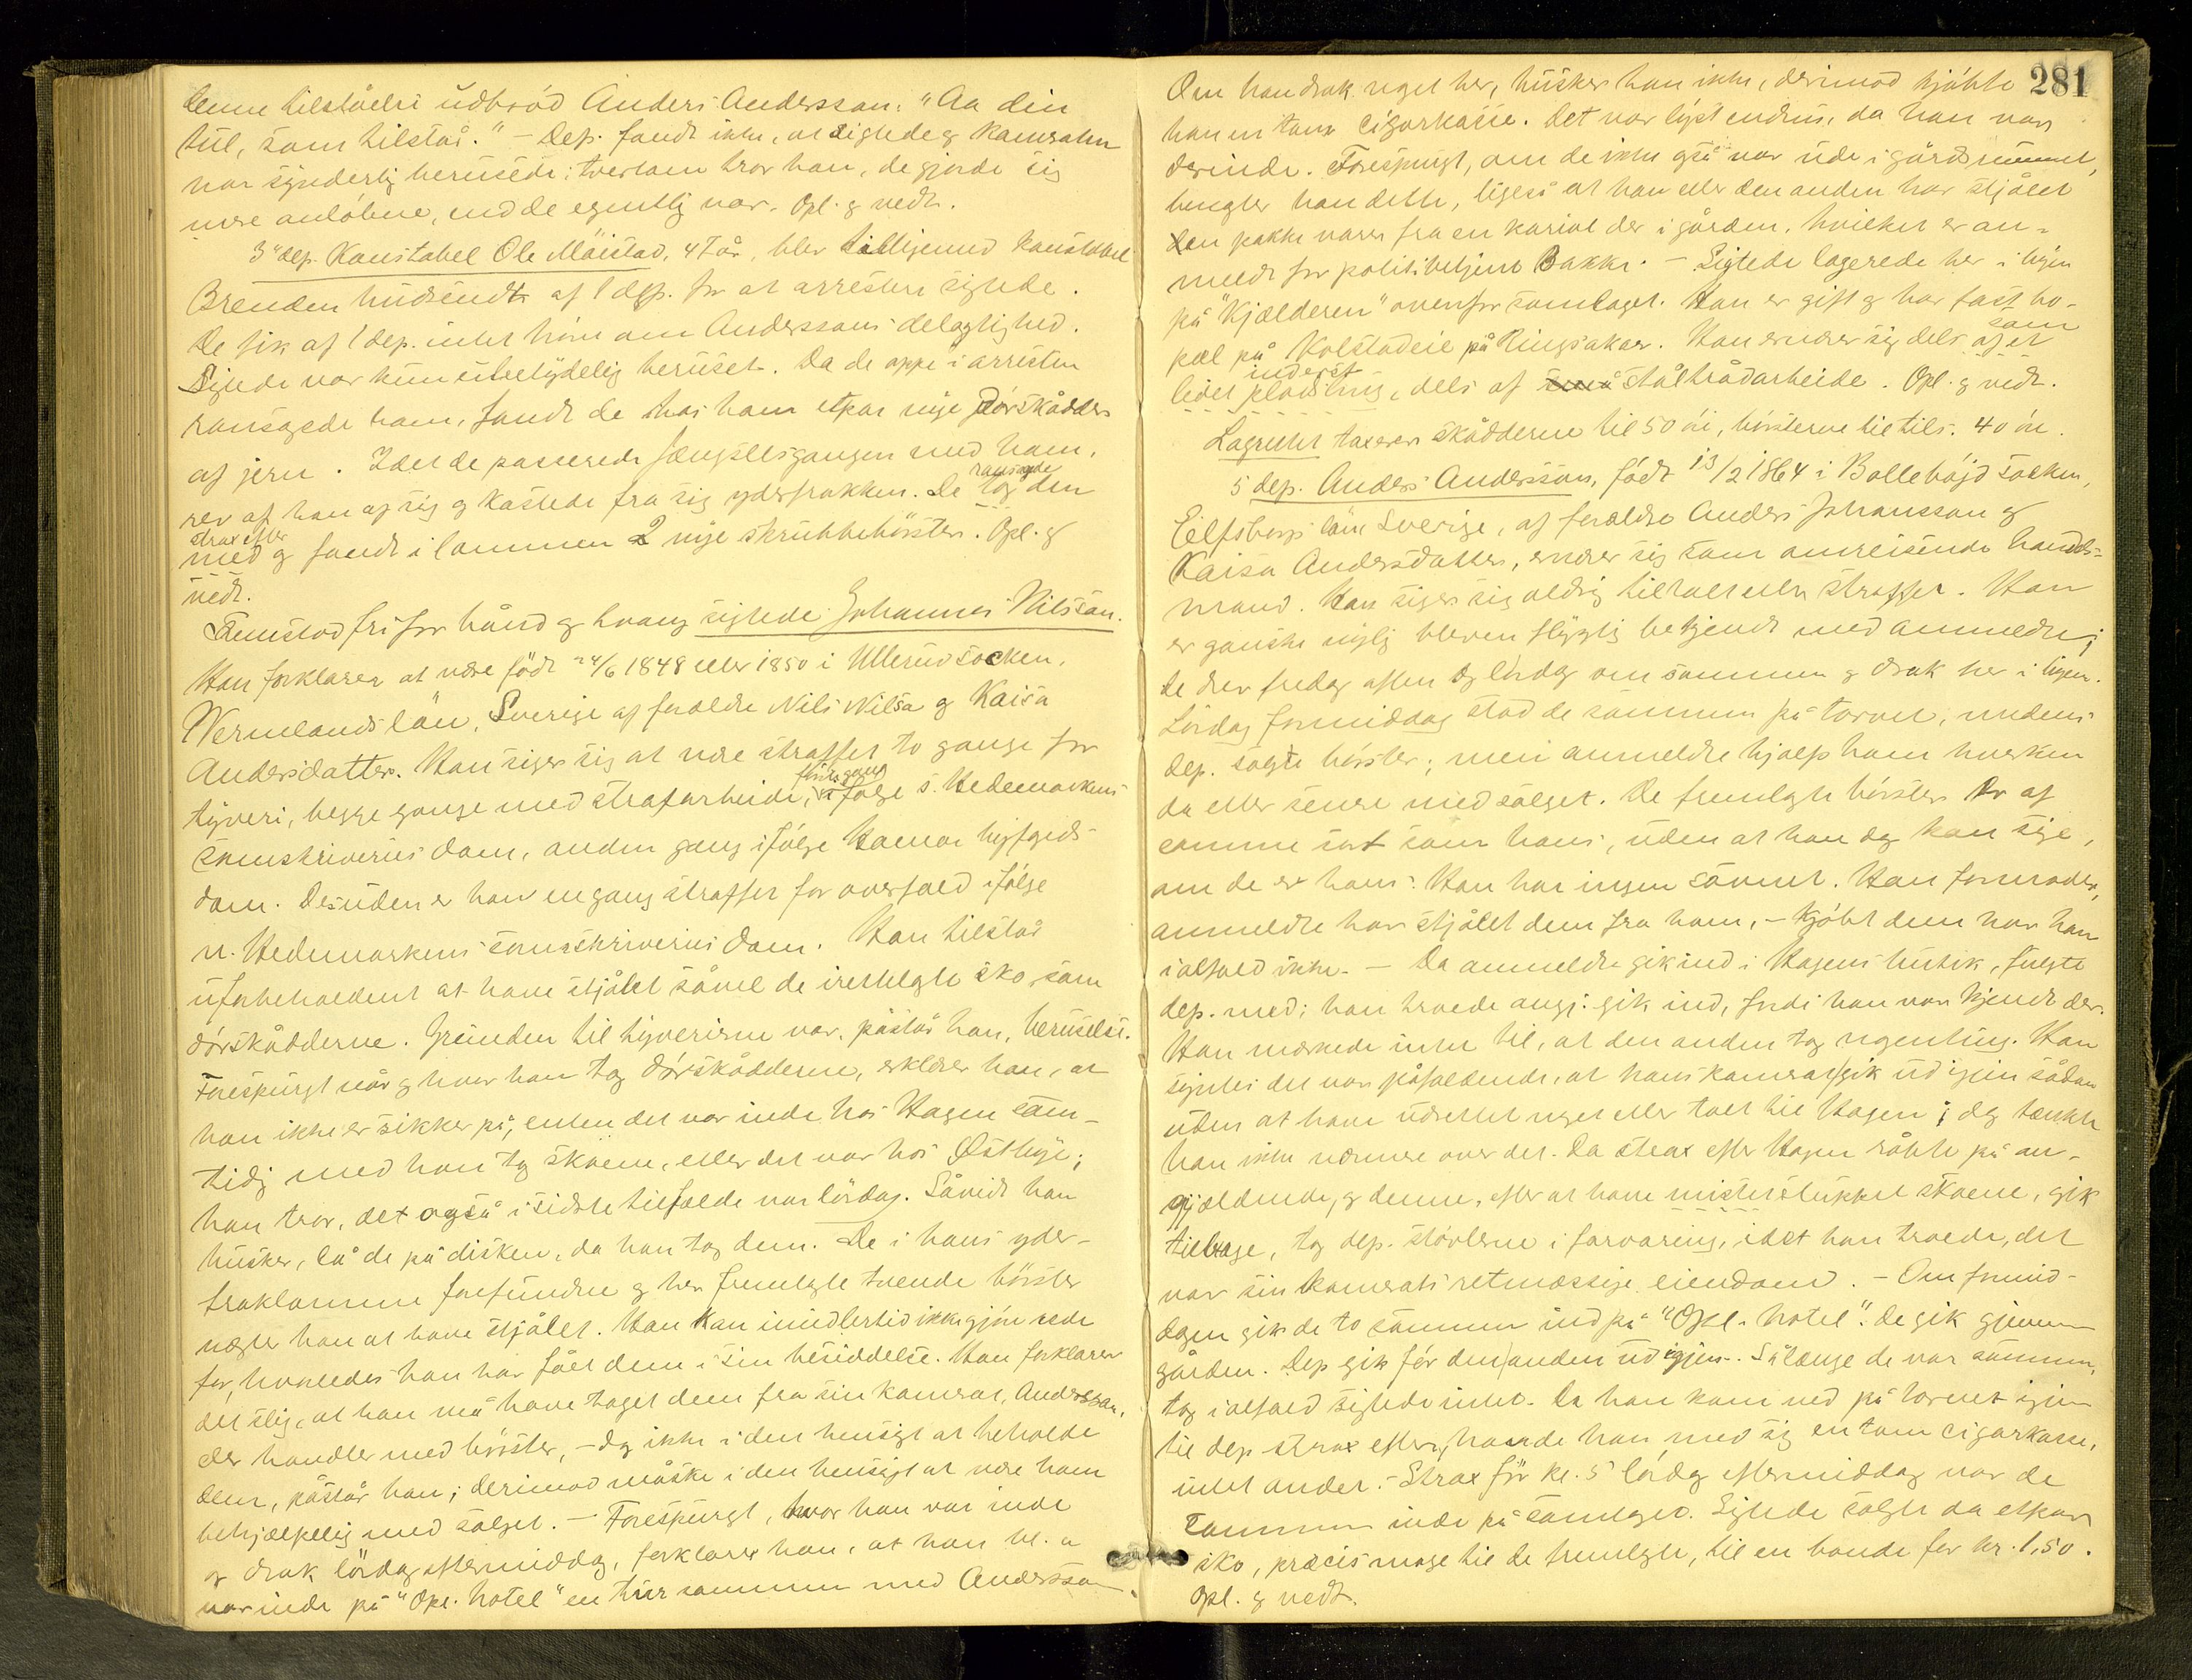 denne tilståelse udbröd Anders Andersson: "Aa din
tul, som tilstår." – Dep. fandt ikke, at sigtede & kameraten
var synderlig berusede; tvertom tror han, de gjorde sig
mere anløbne, end de egentlig var. Opl. & vedt.
3" dep. Konstabel Ole Mæistad, 47 år, blev tilligemed konstabel
Brenden hidsendt af 1 dep. for at arrestere sigtede.
De fik af 1 dep. intet höre om Anderssons delagtighed.
Sigtede var kun ubetydelig beruset. Da de oppe i arresten
ransagede ham, fandt de hos ham etpar nye dörskådder
af jern. Idet de passerede fængselsgangen med ham,
rev af han af sig & kastede fra sig yderfrakken. De tog ransagede den
med strax efter & fandt i lommen 2 nye skrubbebörster. Opl. &
vedt.
Fremstod fri for bånd & tvang sigtede Johannes Nilsson.
Han forklarer at være födt 24/6 1848 eller 1850 i Ullerud socken,
Wermlands län, Sverige af forældre Nils Nilsa & Kaisa
Andersdatter. Han siger sig at være straffet to gange for
tyveri, begge gange med strafarbeide, förste gang ifølge s. Hedemarkens
sorenskriveries dom, anden gang ifölge Hamar byfogeds
dom. Desuden er han engang straffet for overfald ifölge
n. Hedemarkens sorenskriveries dom. Han tilstår
uforbeholdent at have stjålet såvel de irettelagte sko, som
dörskådderne. Grunden til tyverierne var, påstår han, beruselse.
Forespurgt når & hvor han tog dörskådderne, erklærer han, at
han ikke er sikker på, enten det var inde hos Hagen sam-
tidig med han tog skoene, eller det var hos Østbye;
han tror, det også i sidste tilfælde var lördag. Såvidt han
husker, lå de på disken, da han tog dem. De i hans yder-
fraklomme forfundne & her fremlagte tvende börster
nægter han at have stjålet. Han kan imidlertid ikke gjöre rede
for, hvorledes han har fået dem i sin besiddelse. Han forklarer
det slig, at han må have taget dem fra sin kamerat, Andersson,
der handler med börster, – dog ikke i den hensigt at beholde
dem, påstår han; derimod måske i den hensigt at være ham
behjælpelig med salget. – Forespurgt, hvor han var inde
& drak lördag eftermiddag, forklarer han, at han bl. a
var inde på "Opl. hotel" en tur sammen med Andersson.
281
Om han drak noget her, husker han ikke, derimod kjöbte
han en tom cigarkasse. Det var lyst endnu, da han var
derinde. Forespurgt, om de ikke også var ude i gårdsrummet,
benegter han dette, ligeså at han eller den anden har stjålet
den pakke varer fra en kariol der i gården, hvilket er an-
meldt for politibetjent Bakke. – Sigtede logerede her i byen
på "Kjælderen" ovenfor samlaget. Han er gift & har fast bo-
pæl på Kolstadeie på Ringsaker. Han ernærer sig dels af et som
lidet pladsbrug inderst, dels af ståltrådarbeide. Opl. & vedt.
Lagrettet taxerer skådderne til 50 öre, börsterne til tils. 40 öre.
5 dep. Anders Andersson, födt 13/2 1864 i Bolleböjd socken,
Elfsborgs län, Sverige, af forældre Anders Johansson &
Kaisa Andersdatter, ernærer sig som omreisende handels-
mand. Han siger sig aldrig tiltalt eller straffet. Han
er ganske nylig bleven flygtig bekjendt med anmeldte;
de drev fredag aften & lördag om sammen & drak her i byen.
Lördag formiddag stod de sammen på torvet, medens
dep. solgte börster; men anmeldte hjalp ham hverken
da eller senere med salget. De fremlagte börster er af
samme sort som hans, uden at han dog kan sige,
om de er hans. Han har ingen savnet. Han formoder,
anmeldte har stjålet dem fra ham, – kjöbt dem har han
ialfald ikke. – Da anmeldte gik ind i Hagens butik, fulgte
dep. med; han troede angj. gik ind, fordi han var kjendt der.
Han mærkede intet til, at den anden tog nogenting. Han
syntes det var påfaldende, at hans kamerat gik ud igjen sådan
uden at have udrettet noget eller talt til Hagen; dog tænkte
han ikke nærmere over det. Da strax efter Hagen råbte på an-
gjældende, & denne, efter at have misterstukket skoene, gik
tilbage, tog dep. stövlerne i forvaring, idet han troede, det
var sin kamerats retmæssige eiendom. – Om formid-
dagen gik de to sammen ind på "Opl. hotel". De gik gjennem
gården. Dep gik för den anden ud igjen. Sålænge de var sammen,
tog ialfald sigtede intet. Da han kom ned på torvet igjen
til dep strax efter, havde han med sig en tom cigarkasse,
intet andet. – Strax för kl. 5 lördag eftermiddag var de
sammen inde på samlaget. Sigtede solgte da etpar
sko, præcis mage til de fremlagte, til en bonde for kr. 1,50.
Opl. & vedt.